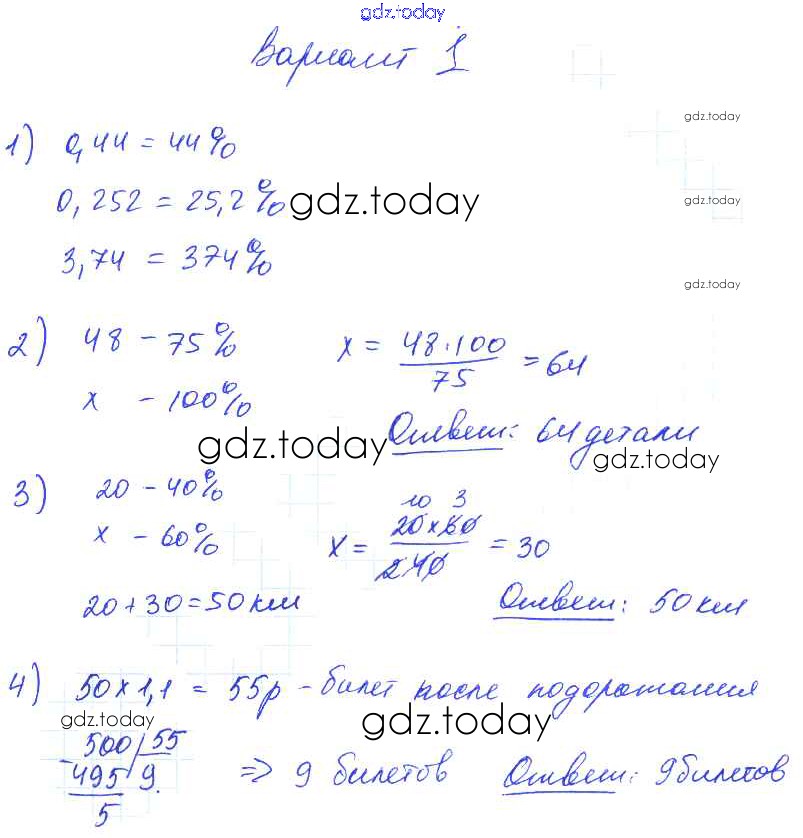 gdz.today
Вариант 1
gdz.today
1) 0,44 = 44%
0,252 = 25,2% gdz.today
gdz.today
3,74 = 374%
gdz.today
2) 48 - 75% x = 48·100/75 = 64
x - 100%
Ответ: 64 детали
gdz.today
gdz.today
3) 20 - 40%
x - 60% x = 20×60/40 = 30
10 3
2
20 + 30 = 50 км Ответ: 50 км
4) 50 × 1,1 = 55р - билет после подорожания
gdz.today gdz.today
500 | 55
- 495 | 9. => 9 билетов Ответ: 9 билетов
5